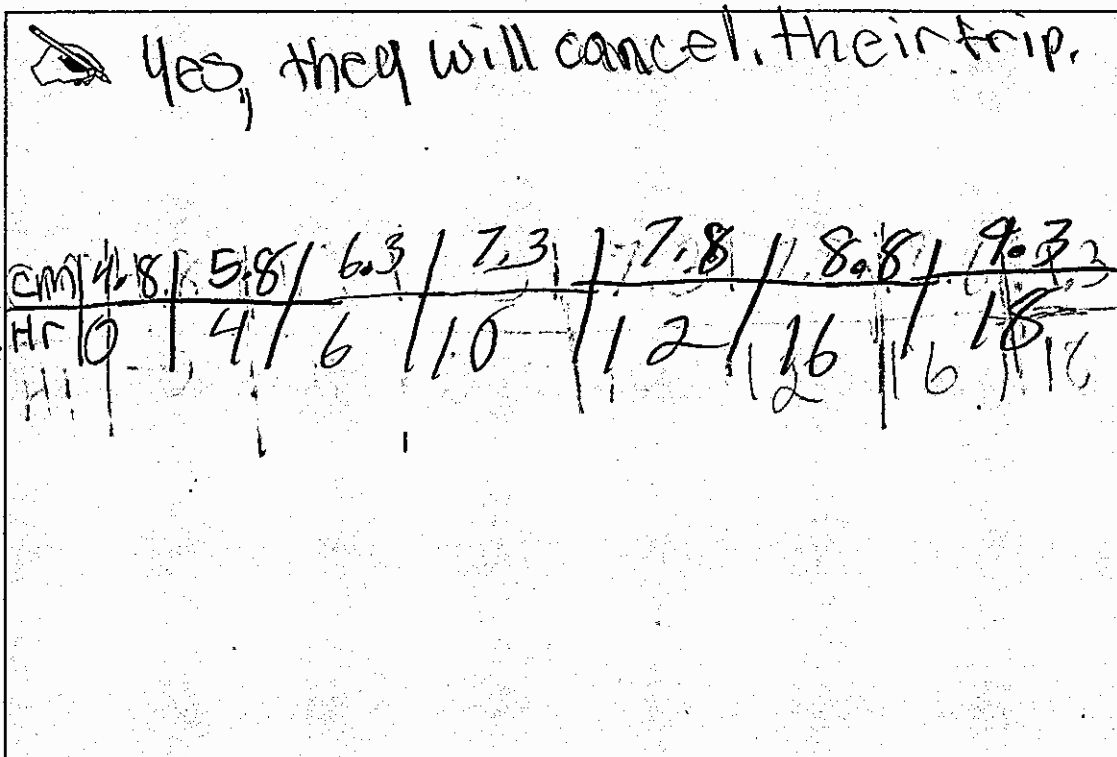 Yes, they will cancel. their trip.
cm 4.8 5.8 6.3 7.3 7.8 8.8 9.3
Hr 0 4 6 10 12 16 18